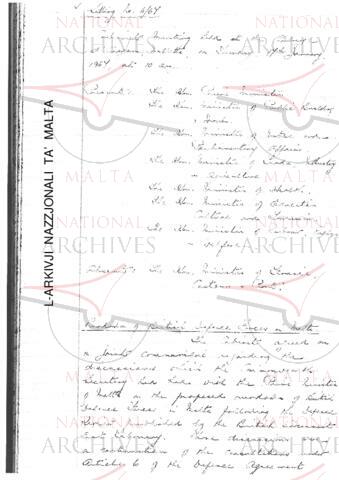 Sitting No. 6/67
Cabinet Meeting held at the
on Thursday
1967 at 10 am.
Present: The Hon. Prime Minister
The Hon. Minister of Public Building
& Works.
The Hon. Minister of
Parliamentary Affairs
The Hon. Minister of Trade Industry
& Agriculture
The Hon. Minister of Health.
The Hon. Minister of Education
Culture and Tourism
The Hon. Minister of Labour
& Welfare
Absent: The Hon. Minister of Finance,
Customs & Port.
Rundown of British Defence Forces in Malta
The Cabinet agreed on
a joint communiqué regarding the
discussions which the Commonwealth
Secretary had had with the Prime Minister
of Malta on the proposed rundown of British
Defence Forces in Malta following the Defence
Review published by the British Government
in February. These discussions were
a continuation of the consultations under
Article 6 of the Defence Agreement
L-ARKIVJI NAZZJONALI TA' MALTA
NATIONAL
ARCHIVES
MALTA